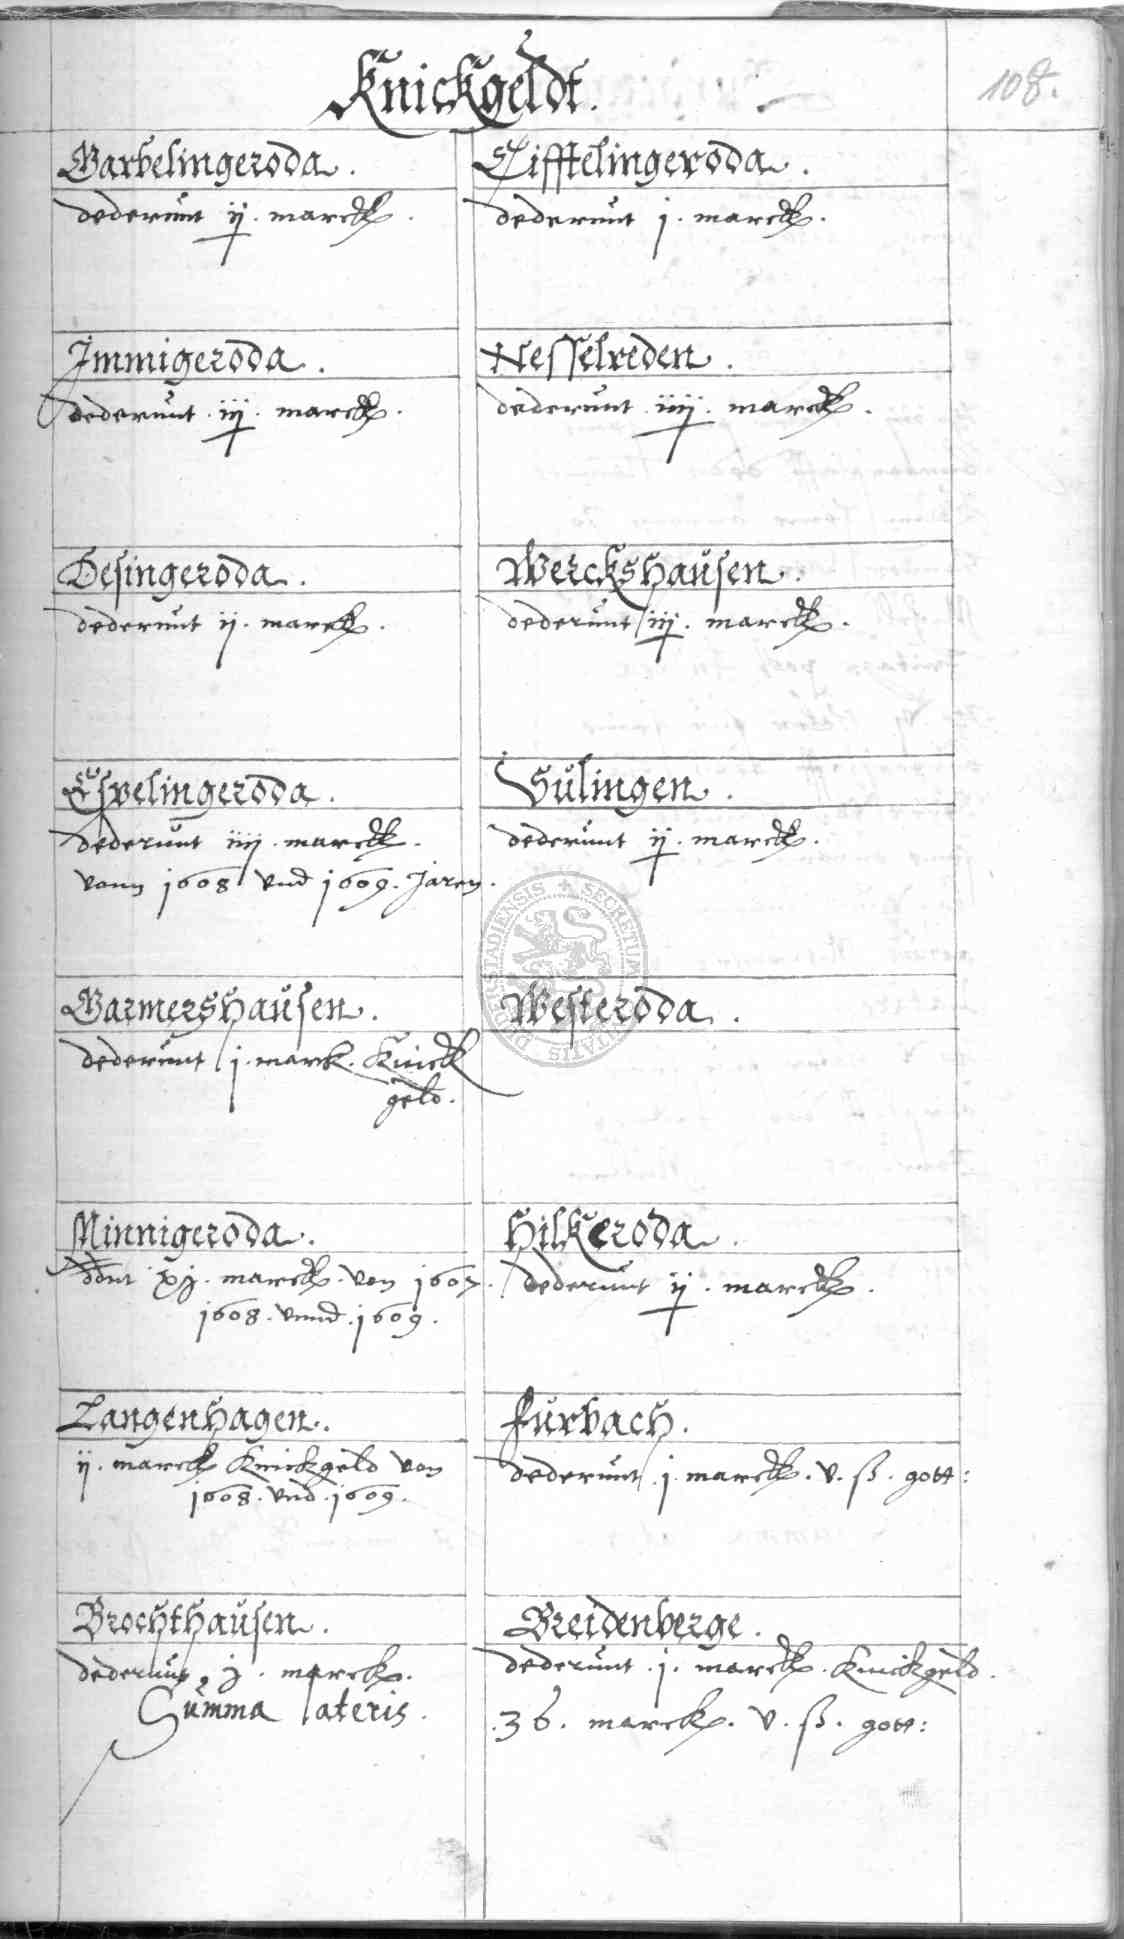 Knickgeldt.
108.
Barbelingeroda.
dederunt ij. marck.
Immigeroda.
dederunt .iij. marck.
Desingeroda.
dederunt ij. marck.
Esvelingeroda.
dederunt iiij. marck.
vonn 1608 vnd 1609. Jaren.
Garmershausen.
dederunt j. marck. Knick
geld.
Minnigeroda.
ddnt xj. marck. von 1607.
1608. vnnd. 1609.
Langenhagen.
ij. marck Knickgeld von
1608. vnd. 1609.
Brochthausen.
dederunt j. marck.
Summa lateris.
Tifftelingeroda.
dederunt j. marck.
Nesselreden.
dederunt .iiij. marck.
Werckshausen.
dederunt iij. marck.
Sulingen.
dederunt ij. marck.
Westeroda.
SECRETUM
Hilkeroda.
dederunt ij. marck.
Furbach.
dederunt j. marck. v. ß. gott:
Breidenberge.
dederunt .j. marck. Knickgeld.
.36. marck. v. ß. gott: